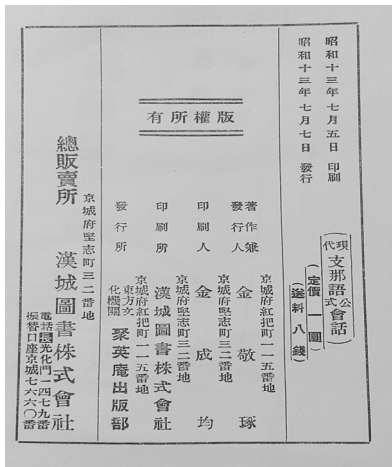 昭和十三年七月五日 印刷
昭和十三年七月七日 發行
現代 支那語公式會話
定價 一圓
(送料 八錢)
版權所有
京城府紅把町一一五番地
著作兼發行人 金敬琢
京城府堅志町三二番地
印刷人 金成均
京城府堅志町三二番地
印刷所 漢城圖書株式會社
京城府紅把町一一五番地
發行所 東方文化機關 聚英庵出版部
京城府堅志町三二番地
總販賣所 漢城圖書株式會社
電話光化門一四七九番
振替口座京城七六六〇番